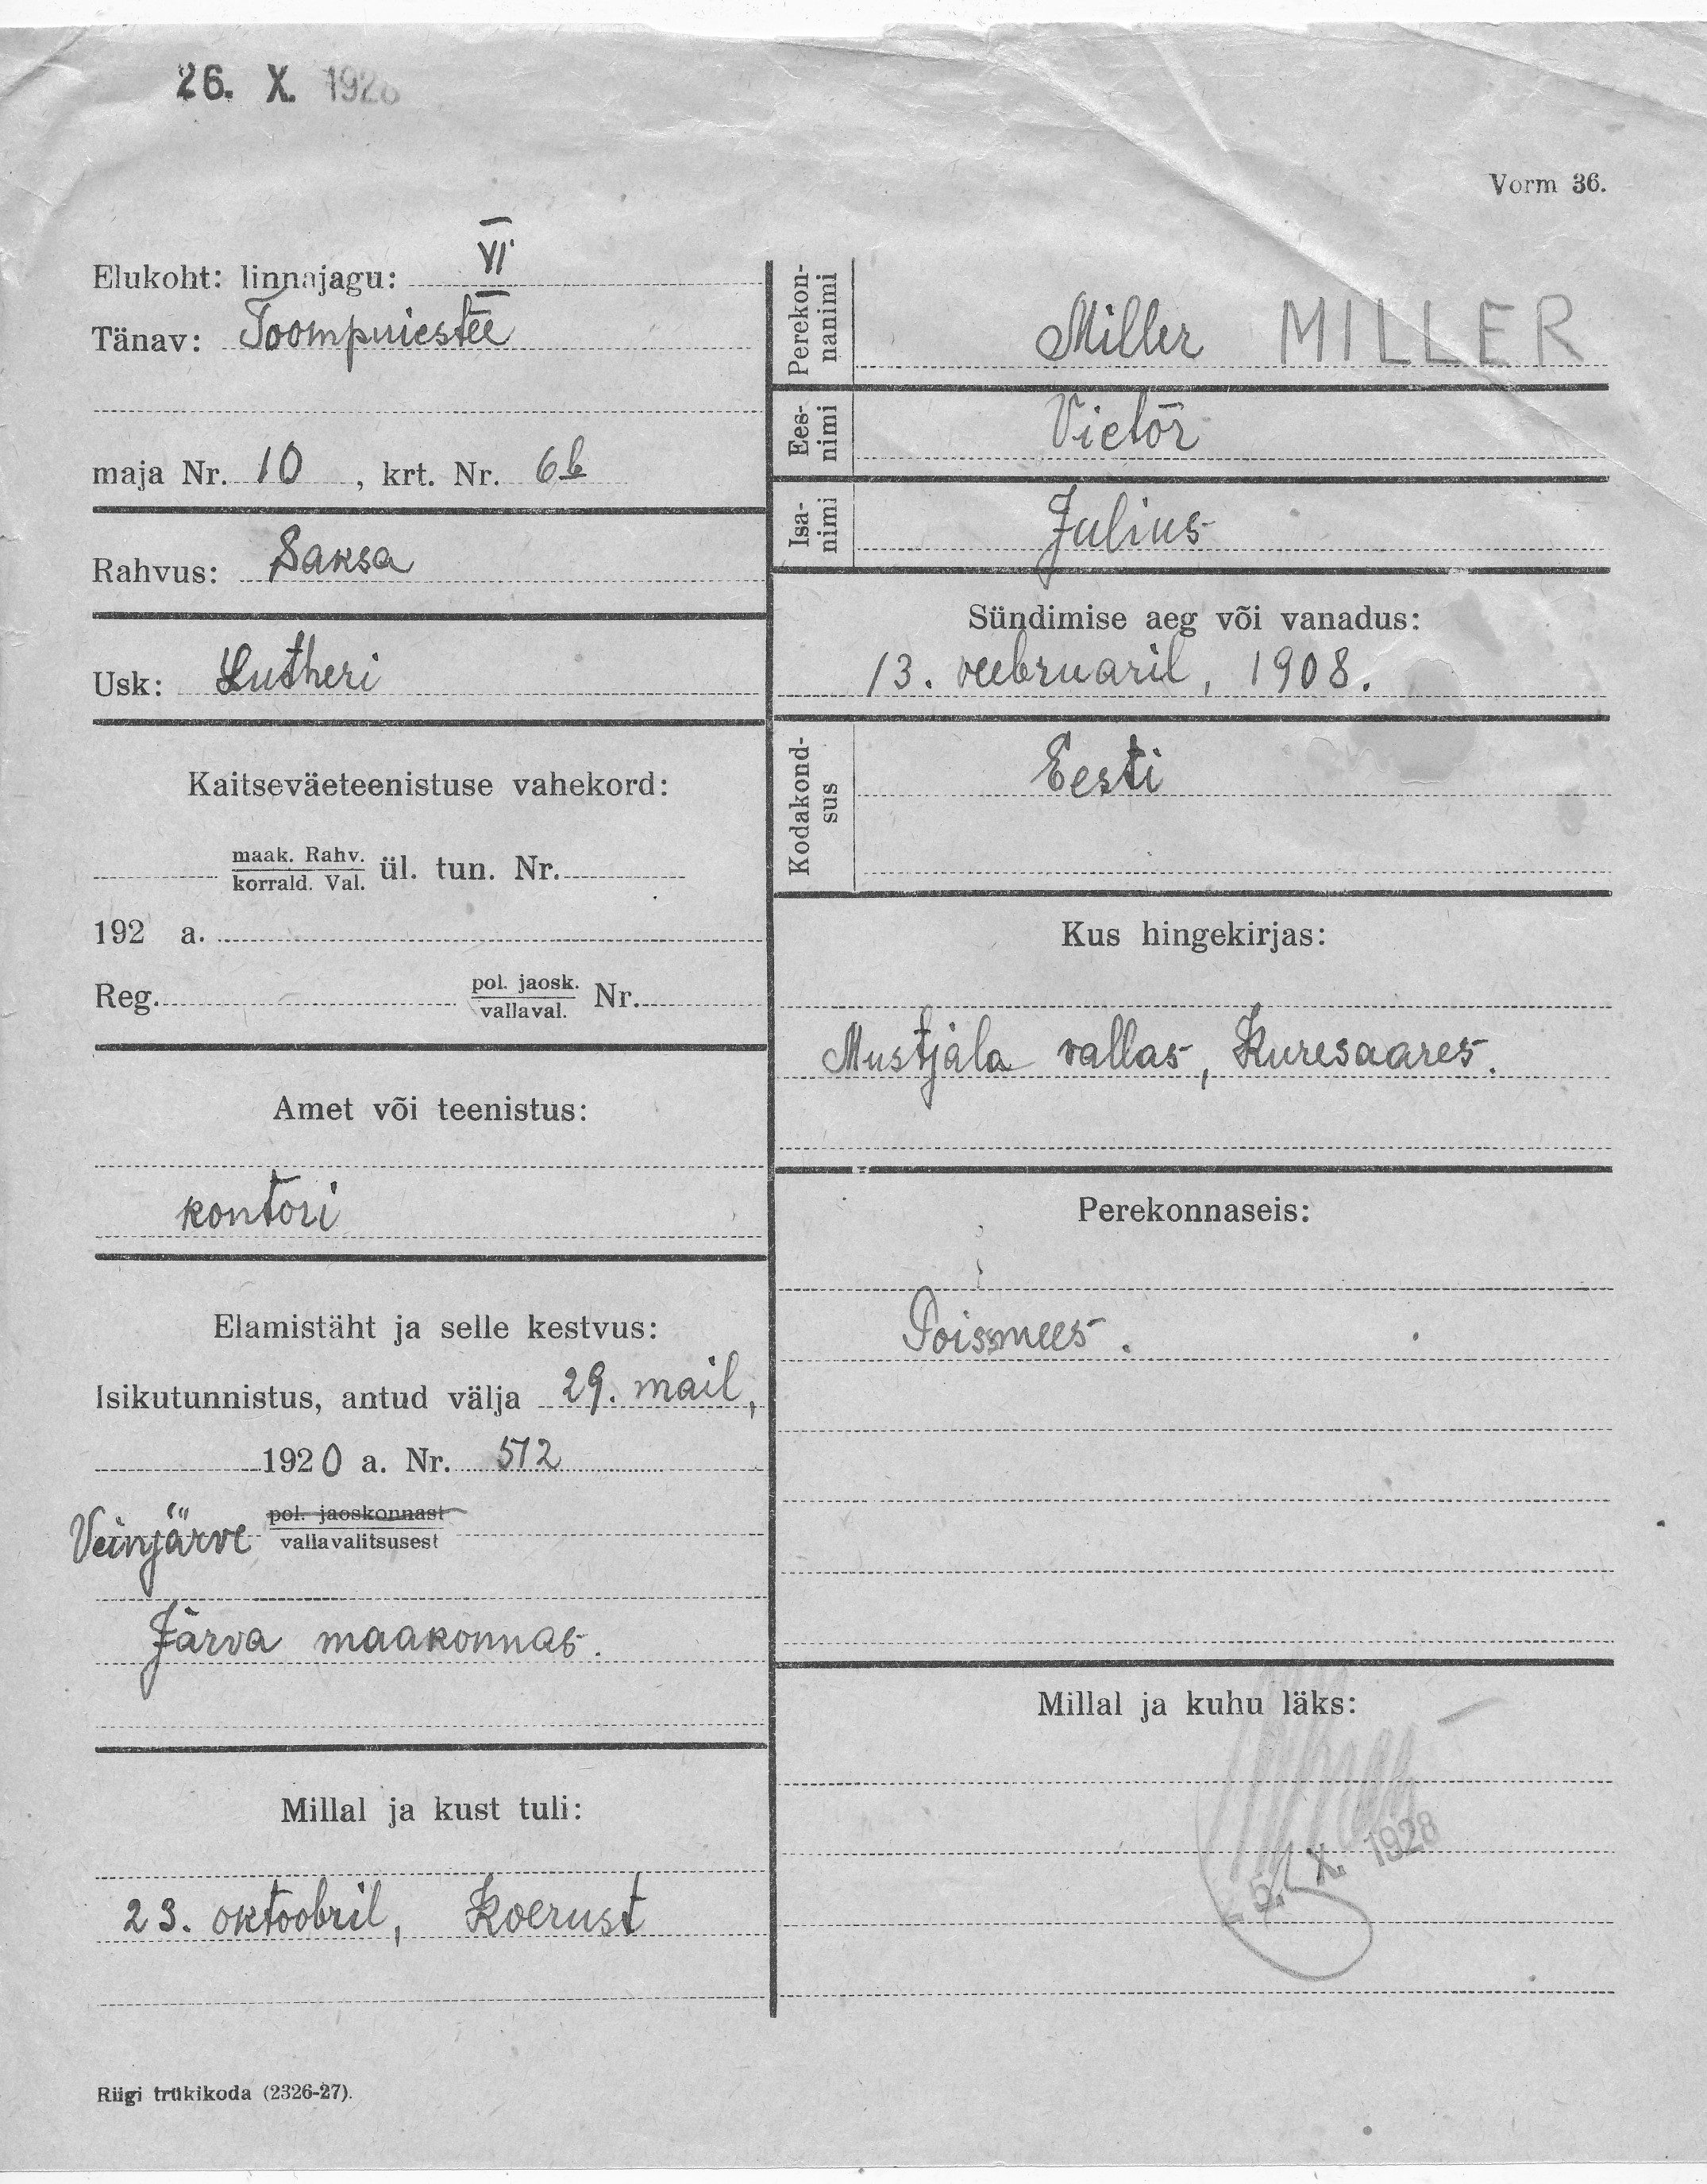 26. X. 1928
Vorm 36.
Elukoht: linnajagu: VI
Tänav: Toompuiestee
maja Nr. 10, krt. Nr. 6b
Rahvus: Saksa
Usk: Lutheri
Kaitseväeteenistuse vahekord:
maak. Rahv.
korrald. Val. ül. tun. Nr.
192 a.
Reg. pol. jaosk.
vallaval. Nr.
Amet või teenistus:
kontori
Elamistäht ja selle kestvus:
Isikutunnistus, antud välja 29. mail,
1920 a. Nr. 512
Veinjärve pol. jaoskonnast
vallavalitsusest
Järva maakonnas.
Millal ja kust tuli:
23. oktoobril, Koerust
Riigi trükikoda (2326-27).
Perekon-
nanimi
Miller MILLER
Ees-
nimi
Victor
Isa-
nimi
Julius
Sündimise aeg või vanadus:
13. veebruaril, 1908.
Kodakond-
sus
Eesti
Kus hingekirjas:
Mustjala vallas, Kuresaares.
Perekonnaseis:
Poissmees.
Millal ja kuhu läks:
5. X. 1928